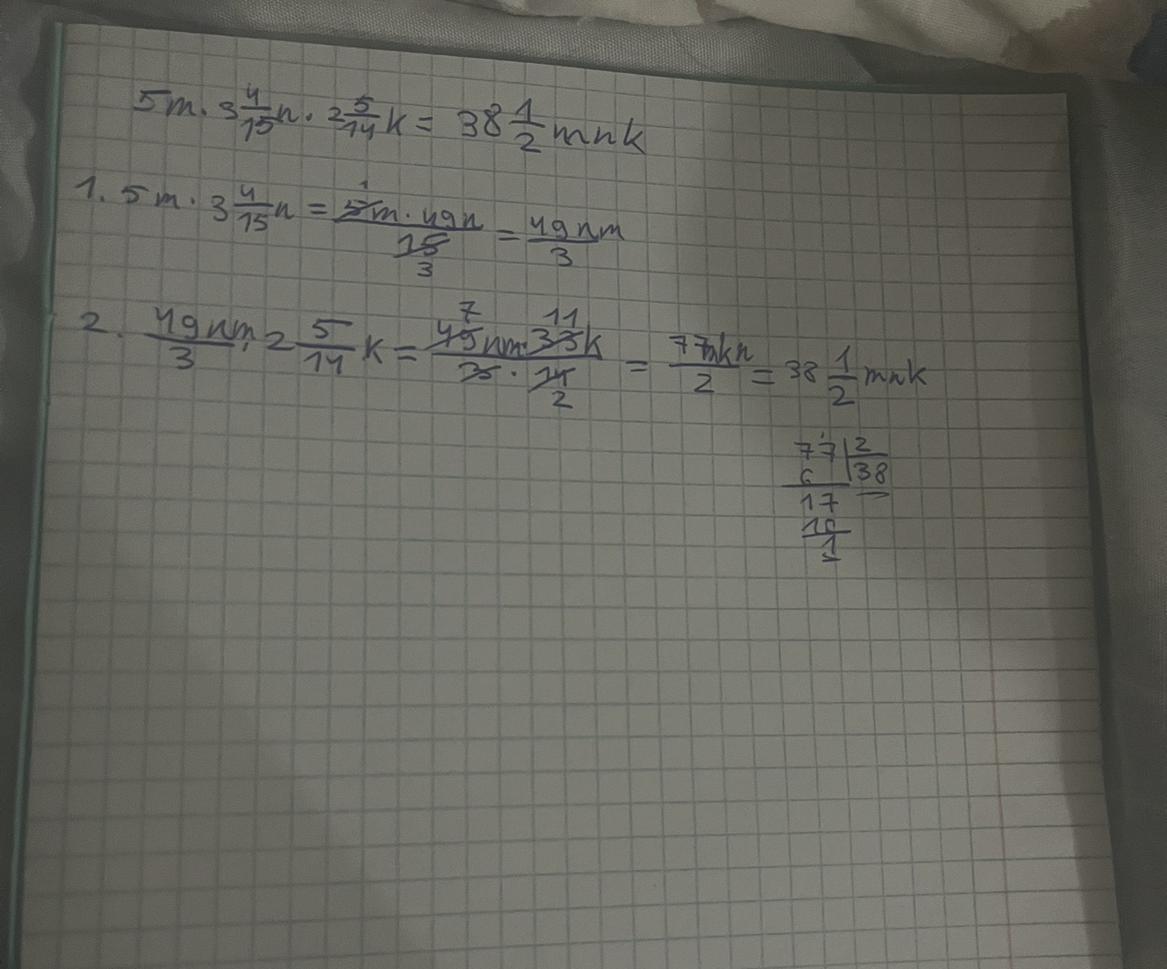 5m · 3 4/15 n · 2 5/14 k = 38 1/2 mnk
1. 5m · 3 4/15 n = 5m · 49n / 15 = 49nm / 3
1
3
2. 49nm / 3 · 2 5/14 k = 49nm · 33k / 3 · 14 = 77mkn / 2 = 38 1/2 mnk
7 11
2
77 | 2
6 | 38
17
16
1